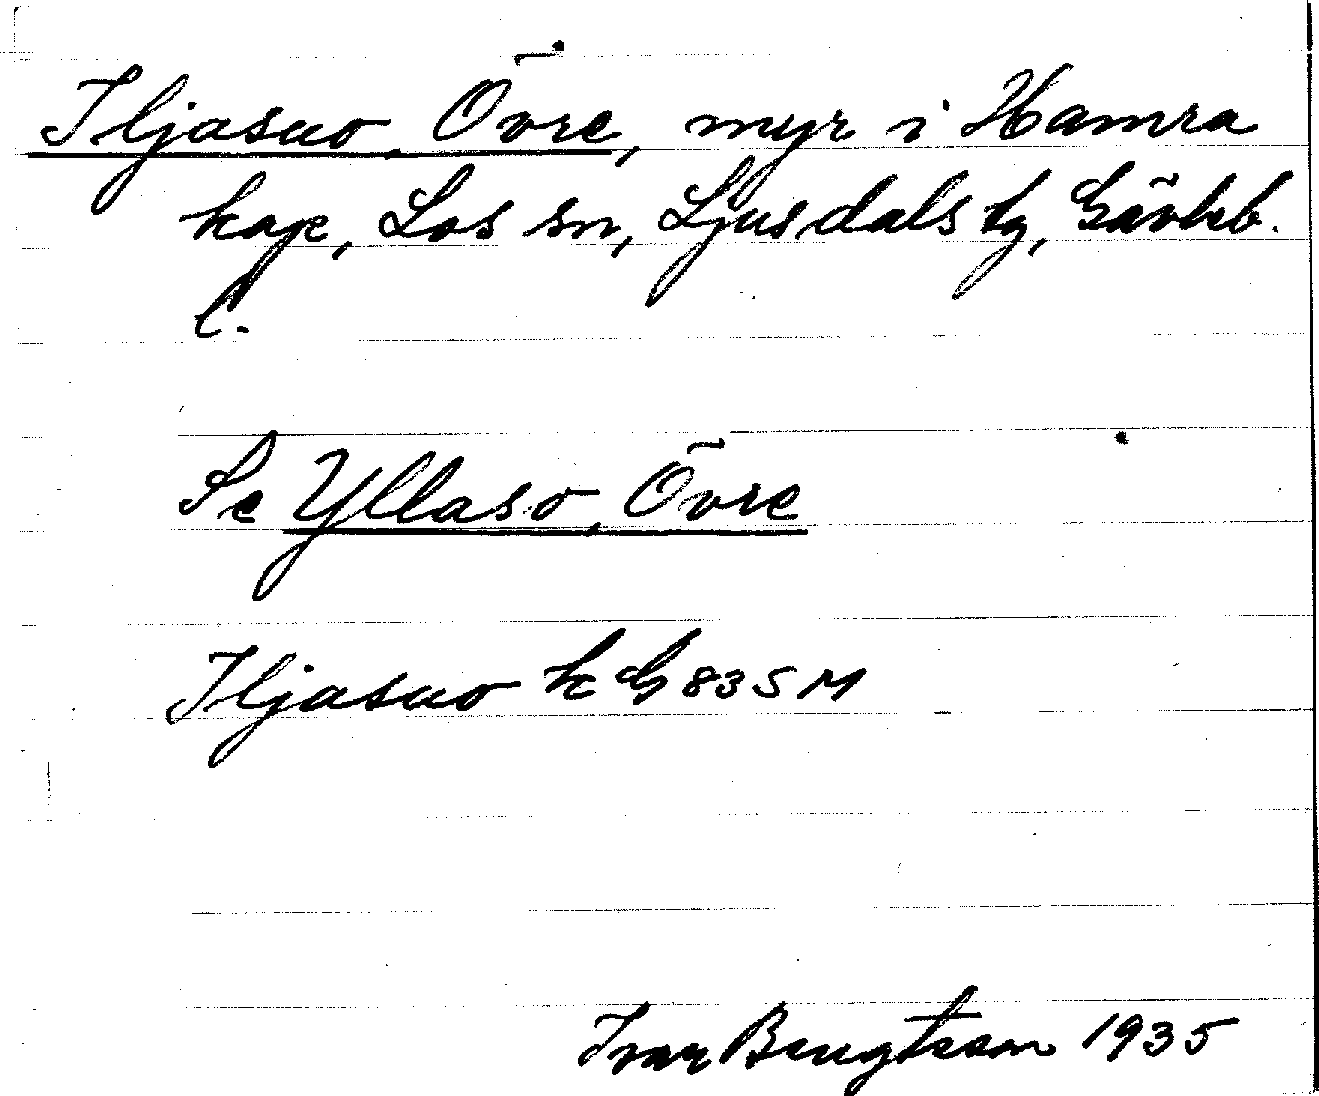 Iljasuo, Övre, myr i Hamra
kap, Los sn, Ljusdals tg, Gävleb.
l.
Se Yllaso, Övre
Iljasuo k G 835 M
Ivar Bengtsson 1935